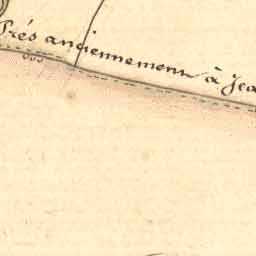 Prés anciennement à Jea